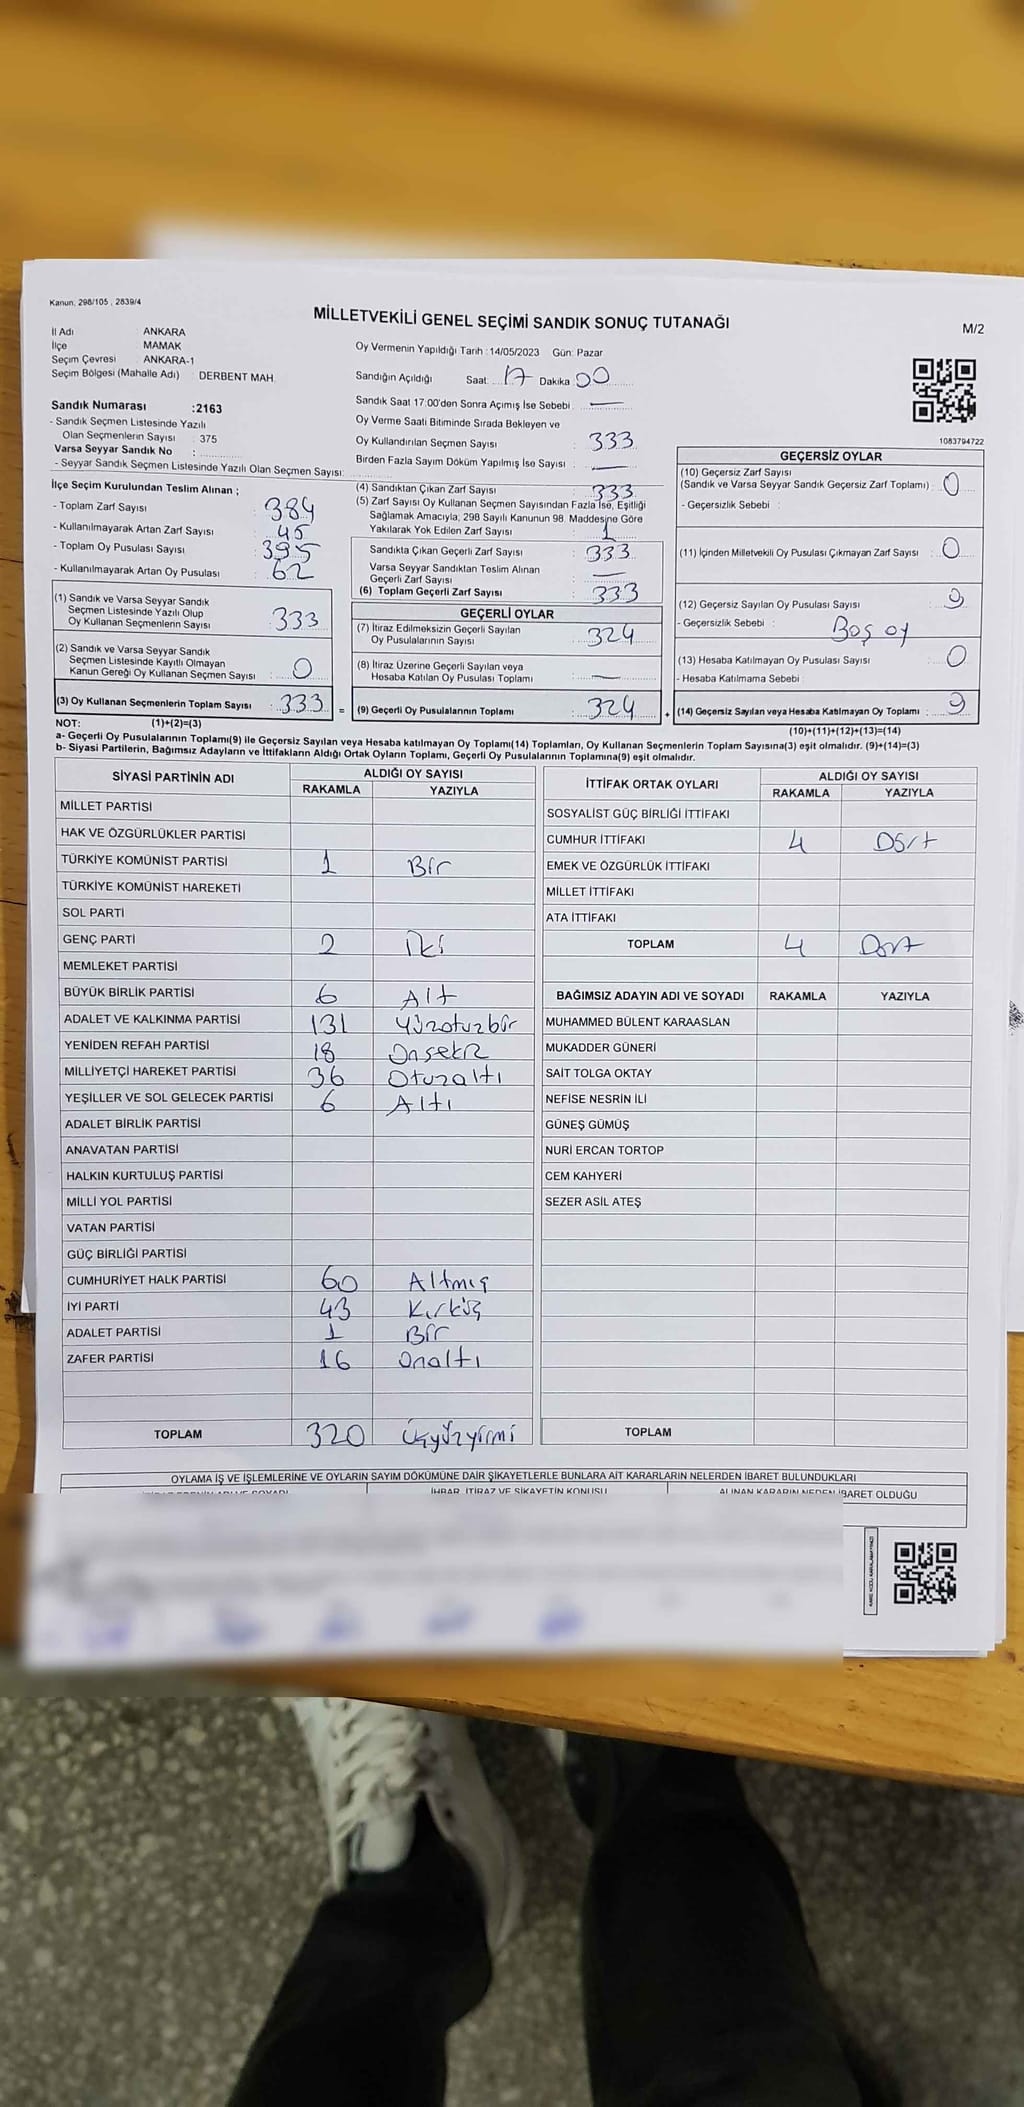 Kanun, 298/105 , 2839/4
MİLLETVEKİLİ GENEL SEÇİMİ SANDIK SONUÇ TUTANAĞI
M/2
İl Adı : ANKARA
İlçe : MAMAK
Seçim Çevresi : ANKARA-1
Seçim Bölgesi (Mahalle Adı) : DERBENT MAH.
Sandık Numarası :2163
- Sandık Seçmen Listesinde Yazılı
Olan Seçmenlerin Sayısı : 375
Varsa Seyyar Sandık No :
- Seyyar Sandık Seçmen Listesinde Yazılı Olan Seçmen Sayısı:
İlçe Seçim Kurulundan Teslim Alınan ;
- Toplam Zarf Sayısı : 384
- Kullanılmayarak Artan Zarf Sayısı : 45
- Toplam Oy Pusulası Sayısı : 395
- Kullanılmayarak Artan Oy Pusulası : 62
(1) Sandık ve Varsa Seyyar Sandık
Seçmen Listesinde Yazılı Olup
Oy Kullanan Seçmenlerin Sayısı : 333
(2) Sandık ve Varsa Seyyar Sandık
Seçmen Listesinde Kayıtlı Olmayan
Kanun Gereği Oy Kullanan Seçmen Sayısı : 0
(3) Oy Kullanan Seçmenlerin Toplam Sayısı : 333
Oy Vermenin Yapıldığı Tarih :14/05/2023 Gün: Pazar
Sandığın Açıldığı Saat: 17 Dakika : 00
Sandık Saat 17:00'den Sonra Açımış İse Sebebi : —
Oy Verme Saati Bitiminde Sırada Bekleyen ve
Oy Kullandırılan Seçmen Sayısı : 333
Birden Fazla Sayım Döküm Yapılmış İse Sayısı : —
(4) Sandıktan Çıkan Zarf Sayısı : 333
(5) Zarf Sayısı Oy Kullanan Seçmen Sayısından Fazla İse, Eşitliği
Sağlamak Amacıyla; 298 Sayılı Kanunun 98. Maddesine Göre
Yakılarak Yok Edilen Zarf Sayısı : 1
Sandıkta Çıkan Geçerli Zarf Sayısı : 333
Varsa Seyyar Sandıktan Teslim Alınan
Geçerli Zarf Sayısı : —
(6) Toplam Geçerli Zarf Sayısı : 333
GEÇERLİ OYLAR
(7) İtiraz Edilmeksizin Geçerli Sayılan
Oy Pusulalarının Sayısı : 324
(8) İtiraz Üzerine Geçerli Sayılan veya
Hesaba Katılan Oy Pusulası Toplamı : —
= (9) Geçerli Oy Pusulalarının Toplamı : 324
1083794722
GEÇERSİZ OYLAR
(10) Geçersiz Zarf Sayısı
(Sandık ve Varsa Seyyar Sandık Geçersiz Zarf Toplamı) : 0
- Geçersizlik Sebebi :
(11) İçinden Milletvekili Oy Pusulası Çıkmayan Zarf Sayısı : 0
(12) Geçersiz Sayılan Oy Pusulası Sayısı : 9
- Geçersizlik Sebebi : Boş oy
(13) Hesaba Katılmayan Oy Pusulası Sayısı : 0
- Hesaba Katılmama Sebebi :
+ (14) Geçersiz Sayılan veya Hesaba Katılmayan Oy Toplamı : 9
NOT: (1)+(2)=(3) (10)+(11)+(12)+(13)=(14)
a- Geçerli Oy Pusulalarının Toplamı(9) ile Geçersiz Sayılan veya Hesaba katılmayan Oy Toplamı(14) Toplamları, Oy Kullanan Seçmenlerin Toplam Sayısına(3) eşit olmalıdır. (9)+(14)=(3)
b- Siyasi Partilerin, Bağımsız Adayların ve İttifakların Aldığı Ortak Oyların Toplamı, Geçerli Oy Pusulalarının Toplamına(9) eşit olmalıdır.
SİYASİ PARTİNİN ADI ALDIĞI OY SAYISI
RAKAMLA YAZIYLA
MİLLET PARTİSİ
HAK VE ÖZGÜRLÜKLER PARTİSİ
TÜRKİYE KOMÜNİST PARTİSİ 1 Bir
TÜRKİYE KOMÜNİST HAREKETİ
SOL PARTİ
GENÇ PARTİ 2 İki
MEMLEKET PARTİSİ
BÜYÜK BİRLİK PARTİSİ 6 Alt
ADALET VE KALKINMA PARTİSİ 131 Yüzotuzbir
YENİDEN REFAH PARTİSİ 18 Onsekiz
MİLLİYETÇİ HAREKET PARTİSİ 36 Otuzaltı
YEŞİLLER VE SOL GELECEK PARTİSİ 6 Altı
ADALET BİRLİK PARTİSİ
ANAVATAN PARTİSİ
HALKIN KURTULUŞ PARTİSİ
MİLLİ YOL PARTİSİ
VATAN PARTİSİ
GÜÇ BİRLİĞİ PARTİSİ
CUMHURİYET HALK PARTİSİ 60 Altmış
İYİ PARTİ 43 Kırküç
ADALET PARTİSİ 1 Bir
ZAFER PARTİSİ 16 Onaltı
TOPLAM 320 Üçyüzyirmi
İTTİFAK ORTAK OYLARI ALDIĞI OY SAYISI
RAKAMLA YAZIYLA
SOSYALİST GÜÇ BİRLİĞİ İTTİFAKI
CUMHUR İTTİFAKI 4 Dört
EMEK VE ÖZGÜRLÜK İTTİFAKI
MİLLET İTTİFAKI
ATA İTTİFAKI
TOPLAM 4 Dört
BAĞIMSIZ ADAYIN ADI VE SOYADI RAKAMLA YAZIYLA
MUHAMMED BÜLENT KARAASLAN
MUKADDER GÜNERİ
SAİT TOLGA OKTAY
NEFİSE NESRİN İLİ
GÜNEŞ GÜMÜŞ
NURİ ERCAN TORTOP
CEM KAHYERİ
SEZER ASİL ATEŞ
TOPLAM
OYLAMA İŞ VE İŞLEMLERİNE VE OYLARIN SAYIM DÖKÜMÜNE DAİR ŞİKAYETLERLE BUNLARA AİT KARARLARIN NELERDEN İBARET BULUNDUKLARI
İHBAR, İTİRAZ VE ŞİKAYETİN KONUSU ALINAN KARARIN NEDEN İBARET OLDUĞU